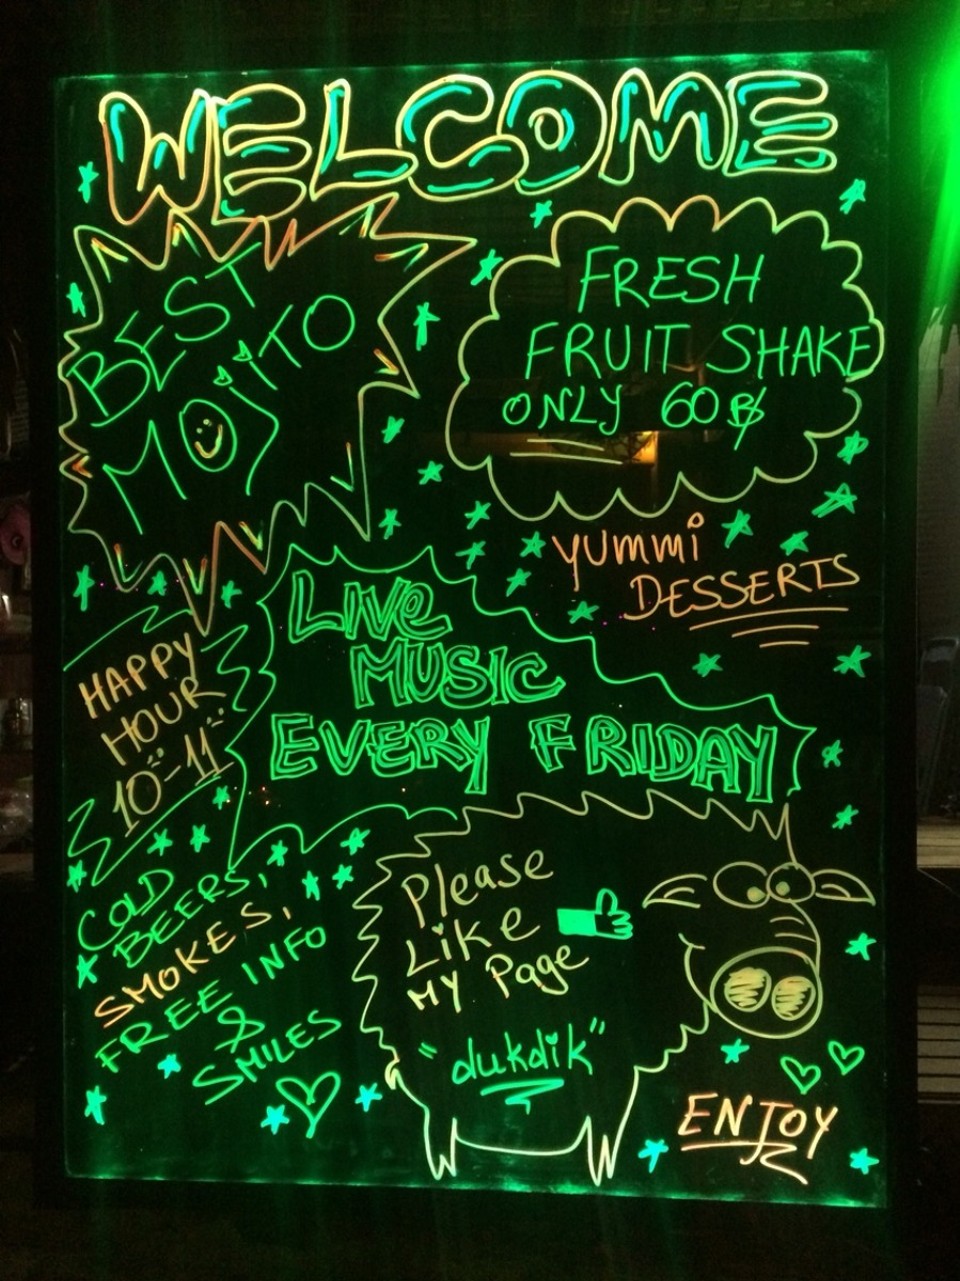 WELCOME
BEST
MOJITO
FRESH
FRUIT SHAKE
ONLY 60฿
YUMMi
DESSERTS
LIVe
MUSIC
EVERY FRIDAY
HAPPY
HOUR
10-11
COLD
BEERS,
SMOKES,
FREE INFO
&
SMILES
Please
Like
MY Page
"dukdik"
ENJOY